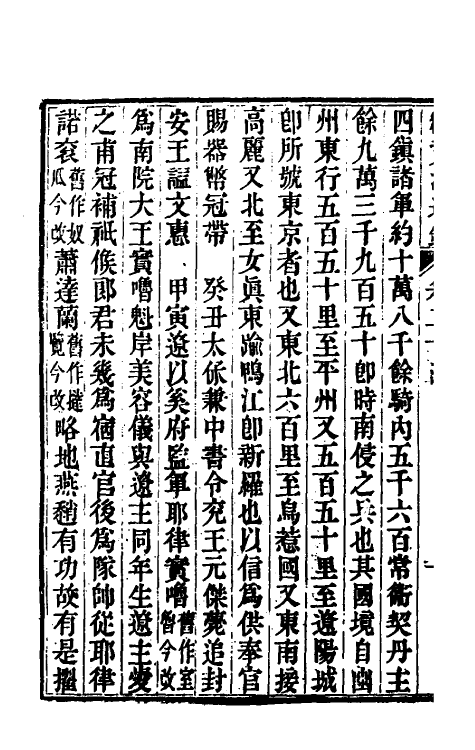 四鎮諸軍約十萬八千餘騎內五千六百常衞契丹主
餘九萬三千九百五十卽時南侵之兵也其國境自幽
州東行五百五十里至平州又五百五十里至遼陽城
卽所號東京者也又東北六百里至烏惹國又東南接
高麗又北至女眞東踰鴨江卽新羅也以信爲供奉官
賜器幣冠帶　癸丑太保兼中書令兗王元傑薨追封
安王謚文惠　甲寅遼以奚府監軍耶律實嚕舊作室魯今改
爲南院大王實嚕魁岸美容儀與遼主同年生遼主愛
之甫冠補祇候郎君未幾爲宿直官後爲隊帥從耶律
諾袞舊作奴瓜今改蕭達蘭舊作撻覽今改略地燕趙有功故有是擢